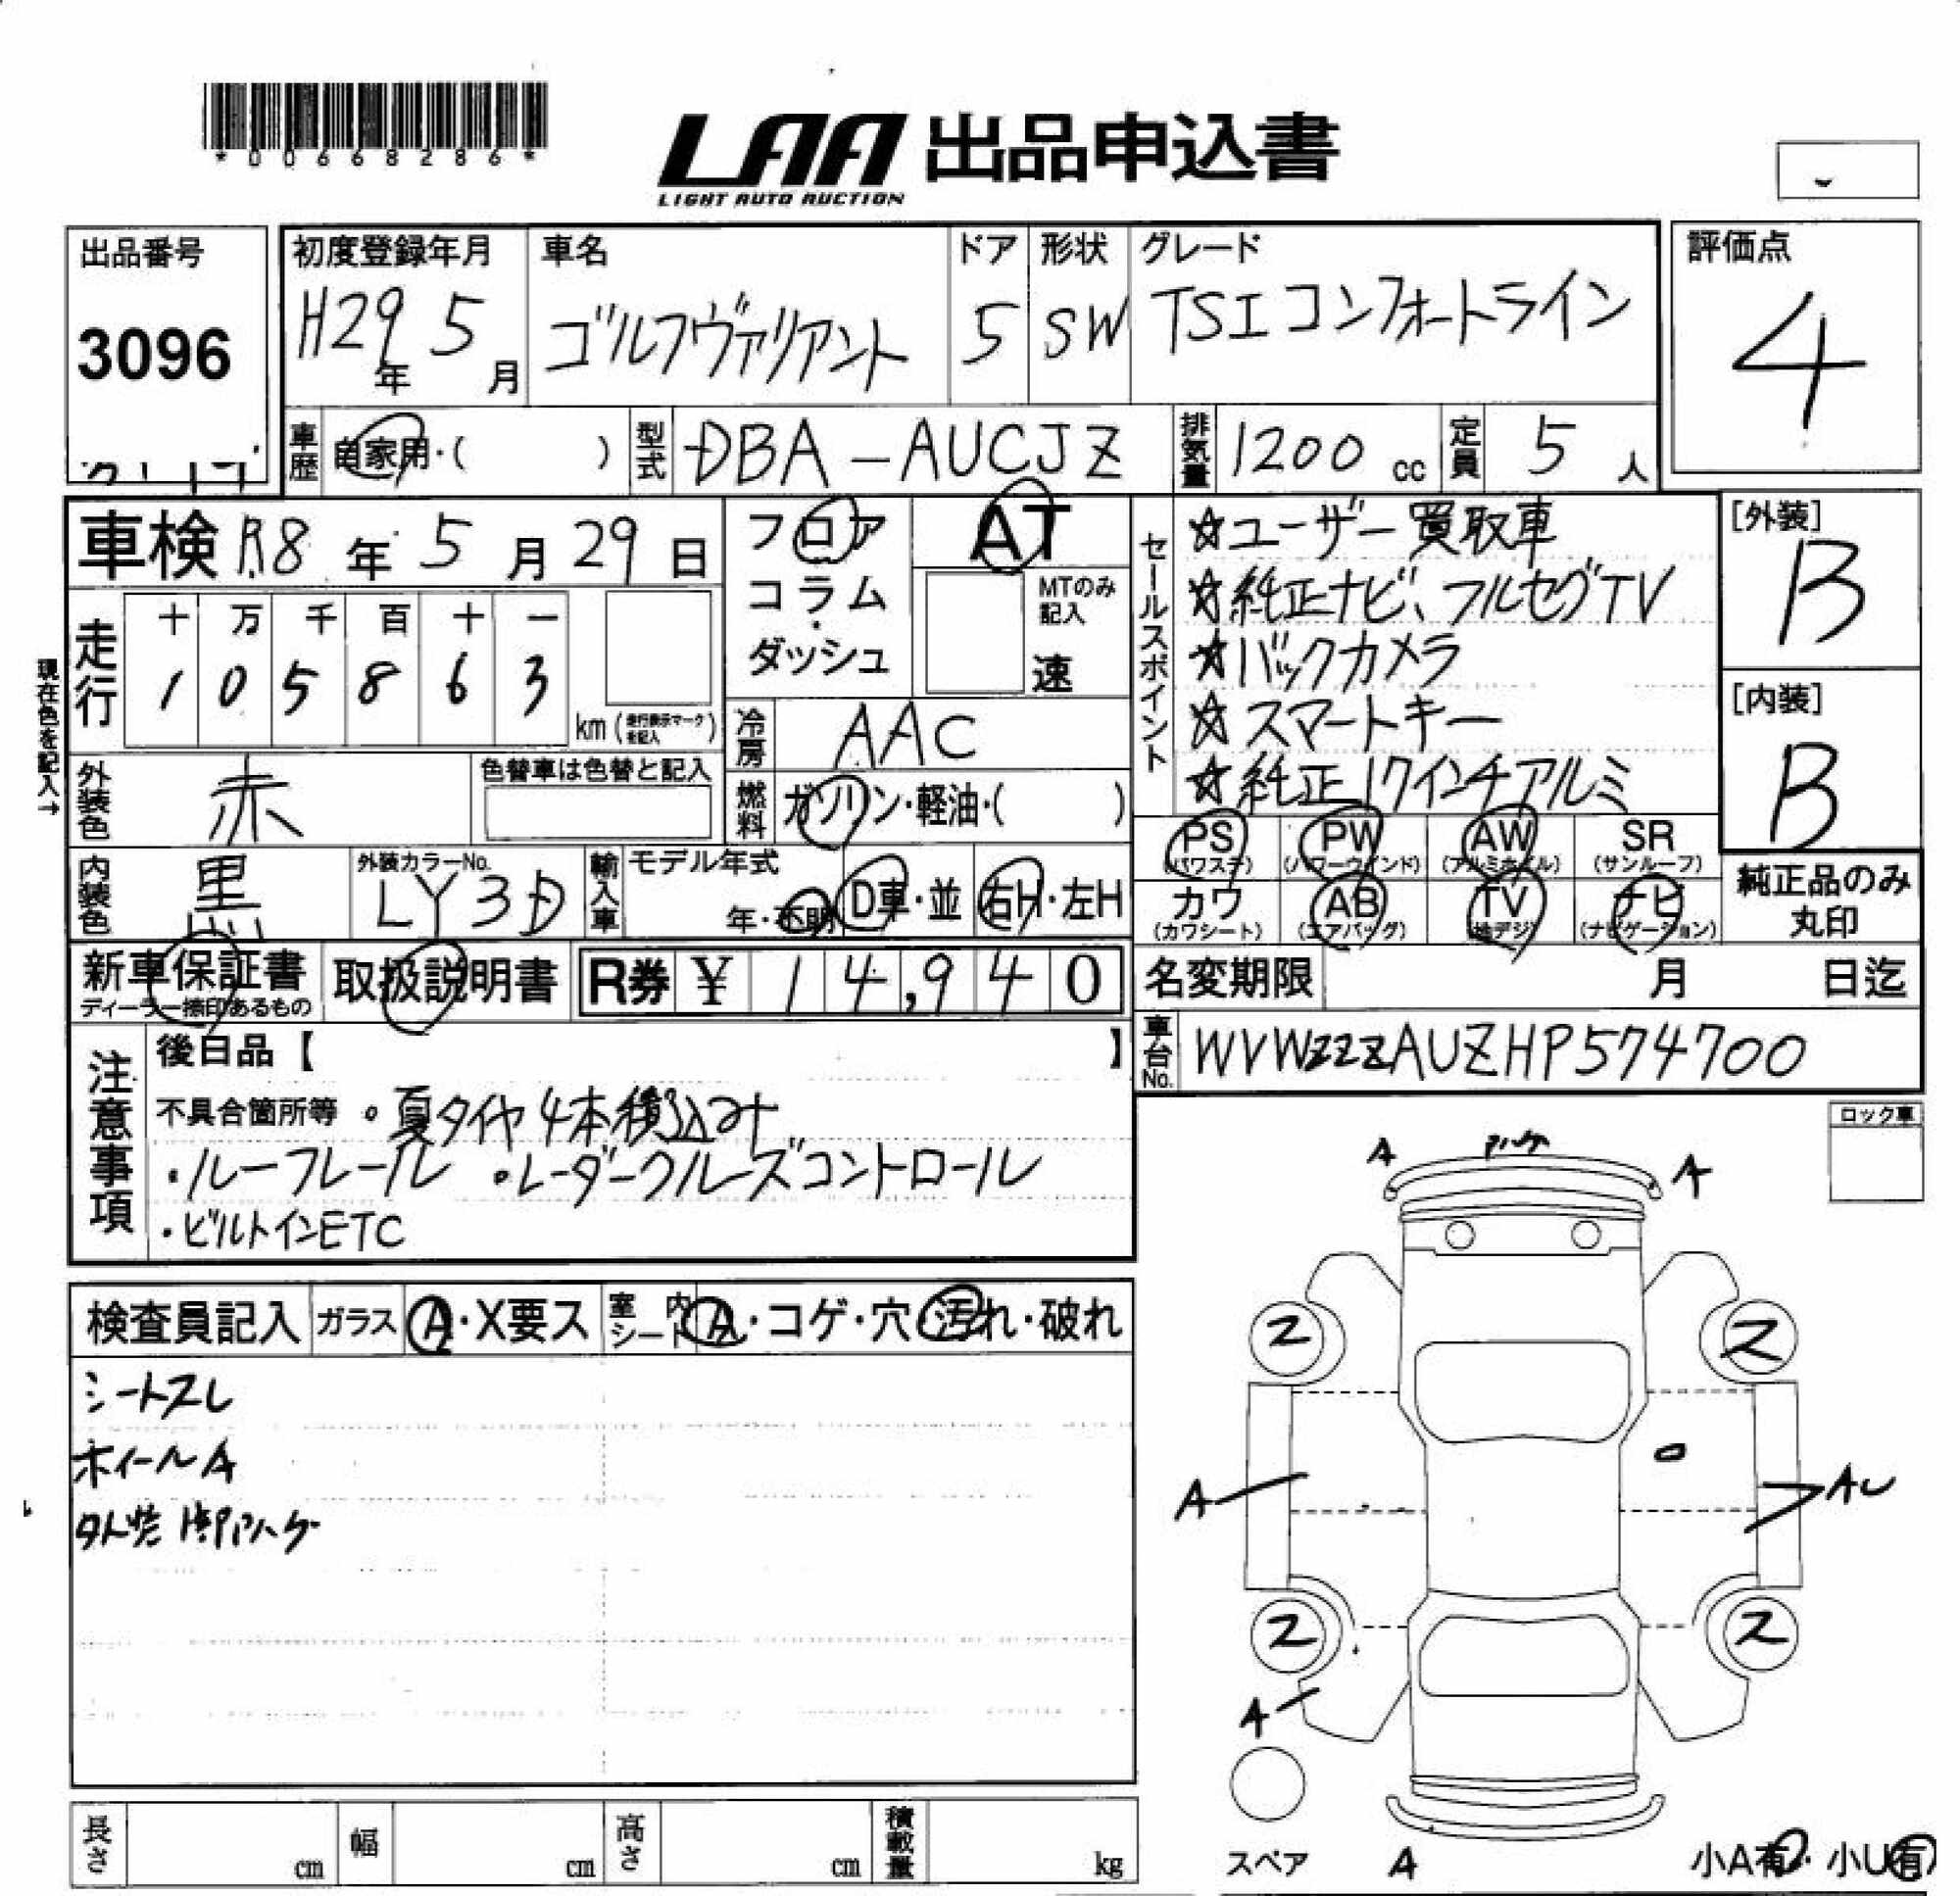 *00668286*
LAA 出品申込書
LIGHT AUTO AUCTION
出品番号
3096
初度登録年月
H29年 5月
車名
ゴルフヴァリアント
ドア
5
形状
SW
グレード
TSIコンフォートライン
評価点
4
車歴 自家用・( )
型式 DBA-AUCJZ
排気量 1200 cc
定員 5 人
車検 R8年 5月 29日
フロア
コラム
・
ダッシュ
AT
MTのみ
記入
速
セールスポイント
☆ユーザー買取車
☆純正ナビ、フルセグTV
☆バックカメラ
☆スマートキー
☆純正17インチアルミ
[外装]
B
[内装]
B
走行
十 万 千 百 十 一
1 0 5 8 6 3
km (走行表示マークを記入)
現在色を記入→
冷房 AAC
外装色 赤
色替車は色替と記入
燃料 ガソリン・軽油・( )
内装色 黒
外装カラーNo.
LY3D
輸入車
モデル年式
年・不明
D車・並
右H・左H
PS (パワステ)
PW (パワーウインド)
AW (アルミホイル)
SR (サンルーフ)
カワ (カワシート)
AB (エアバッグ)
TV (地デジ)
ナビ (ナビゲーション)
純正品のみ
丸印
新車保証書
ディーラー捺印あるもの
取扱説明書
R券 ¥ 14,940
名変期限 月 日迄
車台No. WVWZZZAUZHP574700
注意事項
後日品【 】
不具合箇所等 ・夏タイヤ4本積込み
・ルーフレール ・レーダークルーズコントロール
・ビルトインETC
ロック車
検査員記入
ガラス A・X要ス
室内シート A・コゲ・穴・汚れ・破れ
シートスレ
ホイールA
A
A
2
2
A
AU
2
2
A
スペア
A
小A有・小U有
長さ cm
幅 cm
高さ cm
積載量 kg